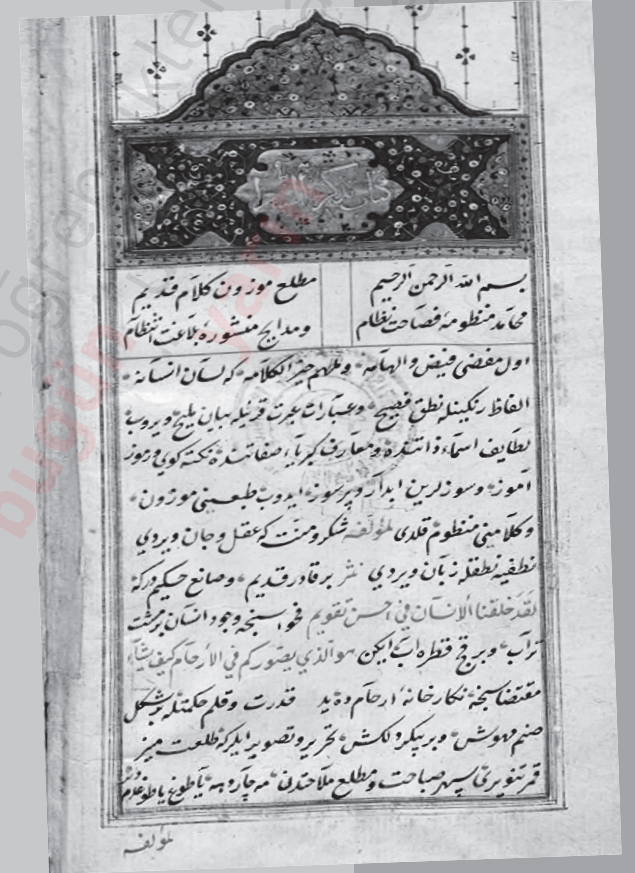 كتاب تذكرة الشعرا
بسم الله الرحمن الرحيم
مطلع موزون كلام قديم
محامد منظومۀ فصاحت نظام
ومدايح منثورۀ بلاغت انتظام
اول مفضى فيض والهامه وملهم خير الكلامه كه لسان انسانه
الفاظ رنكينله نطق فصيح وعبارات عبرت قرينله بيان مليح ويروب
لطايف اسماء ذاتنده ومعارف كبرياء صفاتنده نكته كوى ورموز
آموز وسوزلرين ابدار وپرسوز ايدوب طبعينى موزون
وكلامينى منظوم قلدى لمؤلفه شكر ومنت كه عقل وجان ويردى
نطفيه نطقله زبان ويردى نثر بر قادر قديم وصانع حكيمدركه
لقد خلقنا الانسان فى احسن تقويم فحواسنجه وجود انسان بر مشت
تراب وبر قچ قطره آب ايكن هو الذي يصوركم في الأرحام كيف يشاء
مقتضاسنجه نكارخانۀ ارحامده يد قدرت وقلم حكمتله بر شكل
صنم مهوش وبر پيكر دلكش تحرير وتصوير ايلركه طلعت
قمر تنويرى سپهر صباحت ومطلع ملاحتدن مه چاردهه يا طوغ يا طوغرم
لمؤلفه